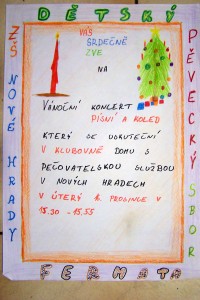 DĚTSKÝ
PĚVECKÝ SBOR
FERMATA
ZŠ NOVÉ HRADY
VÁS
SRDEČNĚ
ZVE
NA
VÁNOČNÍ KONCERT
PÍSNÍ A KOLED
KTERÝ SE USKUTEČNÍ
V KLUBOVNĚ DOMU S
PEČOVATELSKOU SLUŽBOU
V NOVÝCH HRADECH
V ÚTERÝ PROSINCE V
15.30 - 15.55